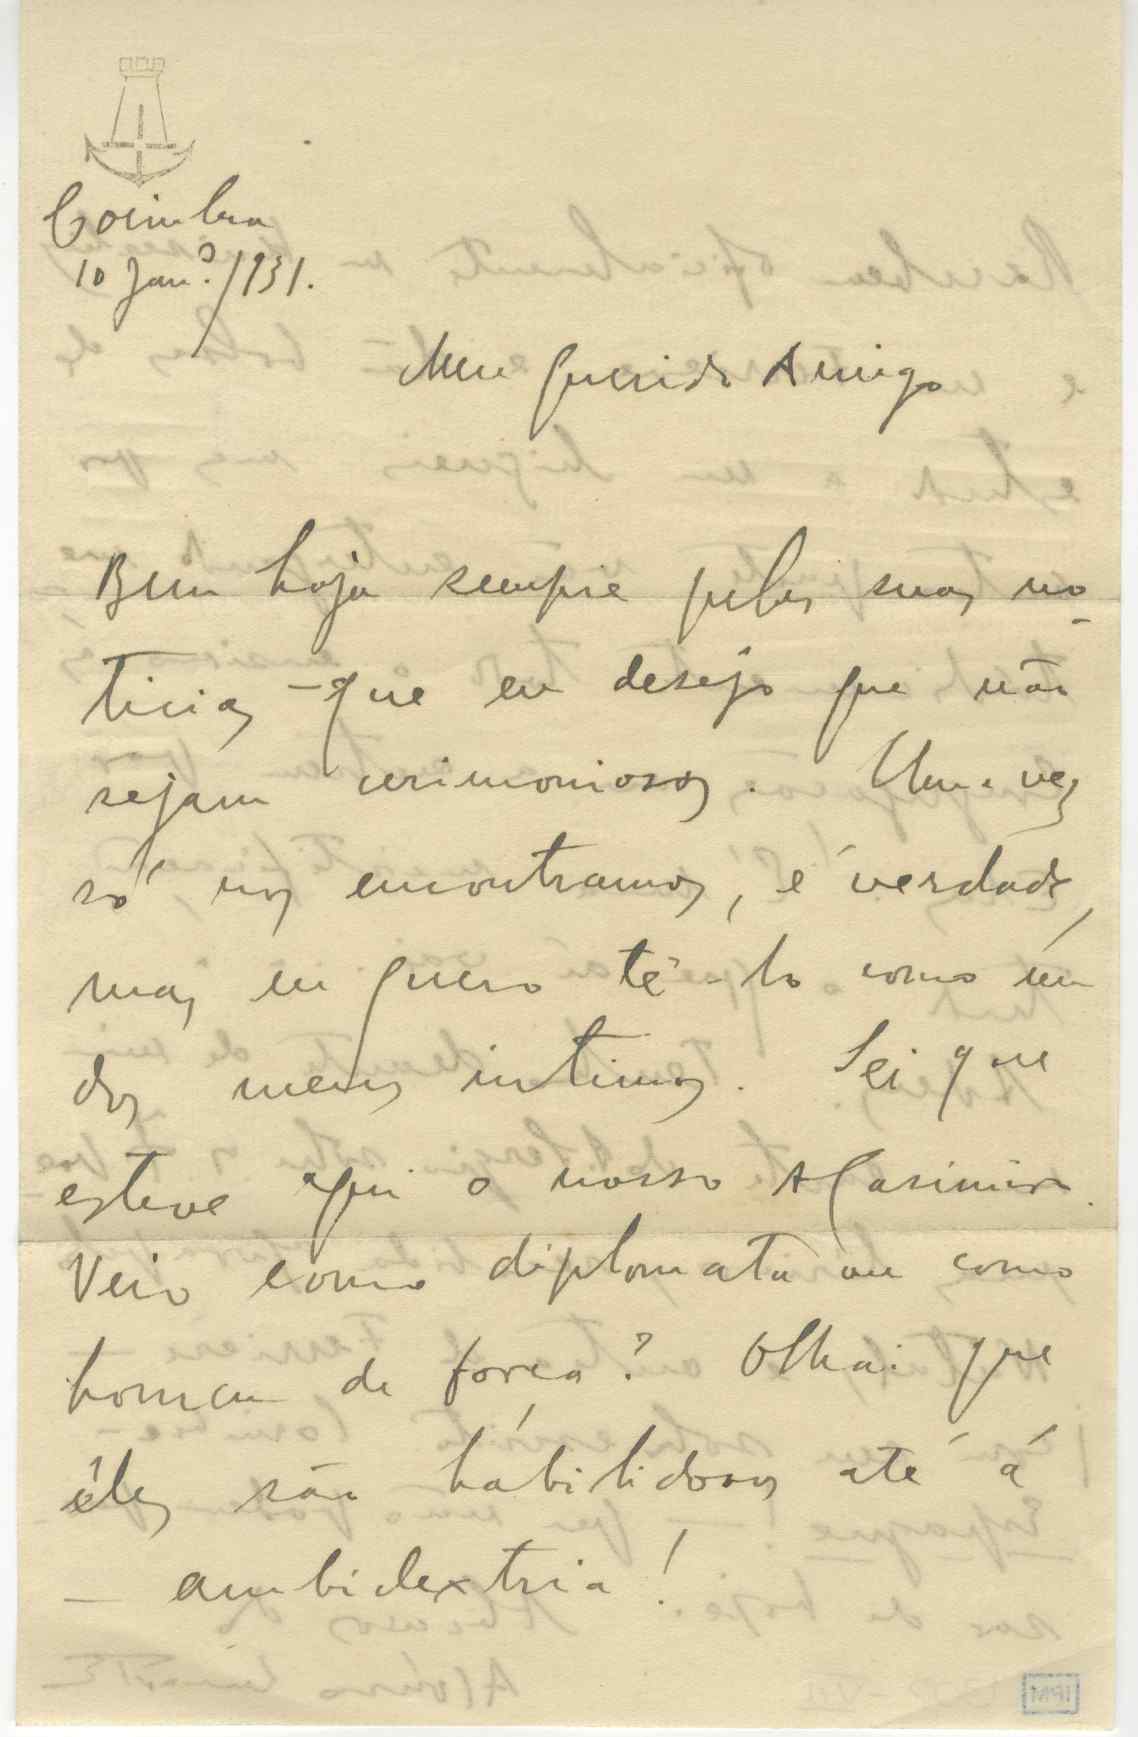 Coimbra
10 Jan.º/931.
Meu querido Amigo
Bem haja sempre pelas suas no-
ticias – que eu desejo que não
sejam cerimoniosas. Uma vez
só nos encontramos, é verdade,
mas eu quero tê-lo como um
dos meus intimos. Sei que
esteve aqui o nosso Casimiro.
Veio como diplomata ou como
homem de forca? Olhai que
êles são hábilidosos até á
– ambidextria!